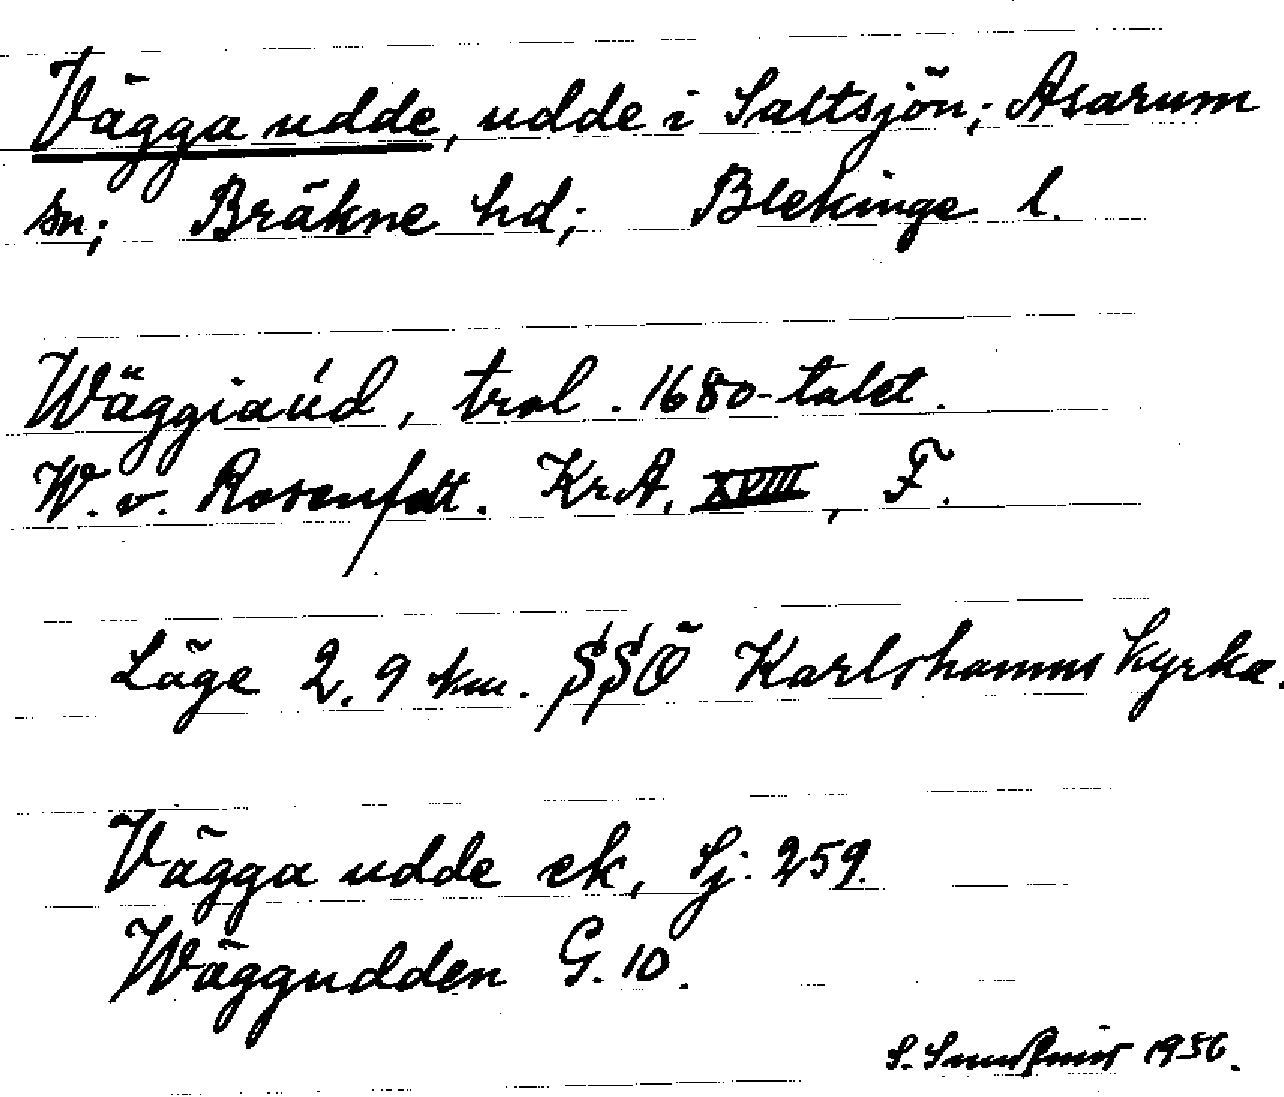 Vägga udde, udde i Saltsjön; Asarum
sn; Bräkne hd; Blekinge l.
Wäggiaúd, trol. 1680-talet.
W. v. Rosenfelt. KrA, XVIII, F.
Läge 2,9 km. SSÖ Karlshamns kyrka.
Vägga udde ek, Sj. 259.
Wäggudden G. 10.
S. 1956.